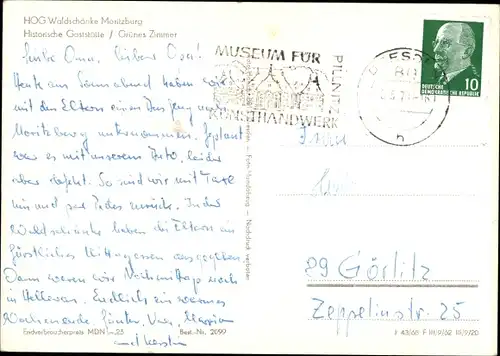 HOG Waldschänke Moritzburg
Historische Gaststätte / Grünes Zimmer
Liebe Oma, lieber Opa!
Heute am Sonnabend haben wir
mit den Eltern einen Ausflug nach
Moritzburg unternommen. Geplant
war es mit unserem Auto, leider
aber defekt. So sind wir mit Taxe
hin und per Pedes zurück. In der
Waldschänke haben die Eltern ein
fürstliches Mittagessen ausgegeben.
Dann waren wir Nachmittag noch
in Hellerau. Endlich ein warmes
Wochenende.
mit Kerstin
Endverbraucherpreis MDN -,25 Best.-Nr. 2099
Nachdruck verboten
MUSEUM FÜR
KUNSTHANDWERK
PILLNITZ
DRESDEN
10
DEUTSCHE
DEMOKRATISCHE REPUBLIK
h
89 Görlitz
Zeppelinstr. 25